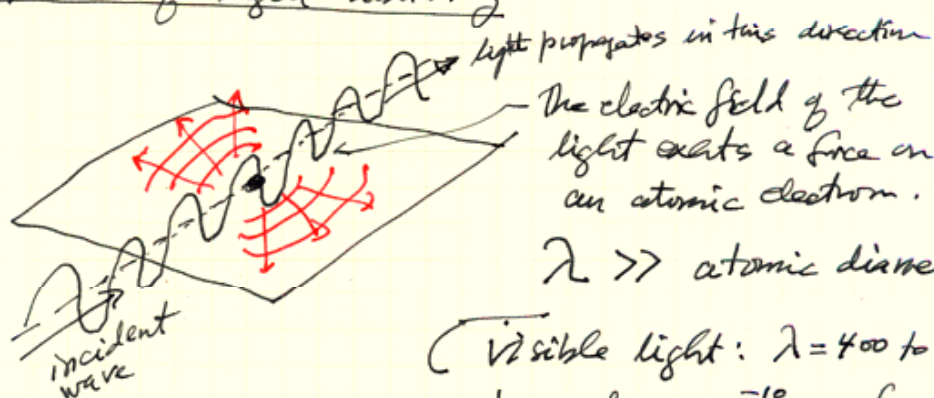 light propagates in this direction
The electric field of the
light exerts a force on
an atomic electron.
λ >> atomic diame
visible light: λ = 400 to
incident
wave